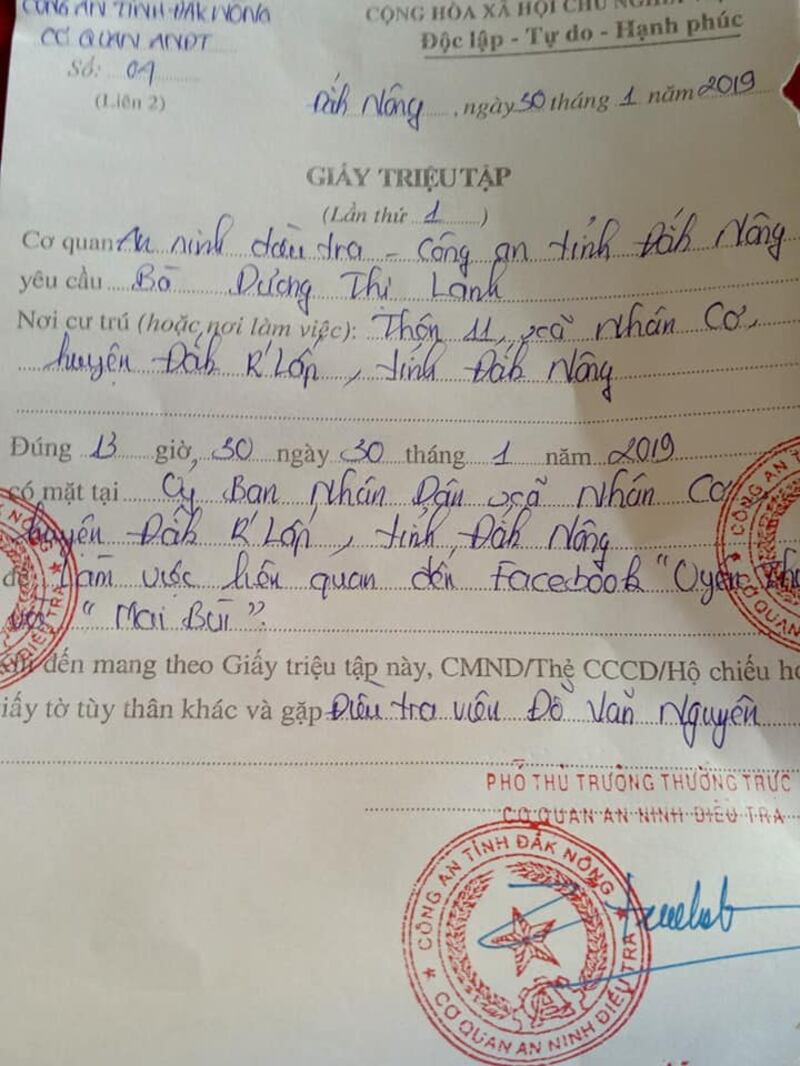 CÔNG AN TỈNH ĐẮK NÔNG
CƠ QUAN ANĐT
Số: 01
(Liên 2)
CỘNG HÒA XÃ HỘI CHỦ
Độc lập - Tự do - Hạnh phúc
Đắk Nông, ngày 30 tháng 1 năm 2019
GIẤY TRIỆU TẬP
(Lần thứ 1)
Cơ quan An ninh điều tra - Công an tỉnh Đắk Nông
yêu cầu Bà Dương Thị Lanh
Nơi cư trú (hoặc nơi làm việc): Thôn 11, xã Nhân Cơ,
huyện Đắk R'Lấp, tỉnh Đắk Nông
Đúng 13 giờ, 30 ngày 30 tháng 1 năm 2019
có mặt tại Ủy Ban Nhân Dân xã Nhân Cơ
huyện Đắk R'Lấp, tỉnh Đắk Nông
để Làm việc liên quan đến Facebook "Uyên
và "Mai Bùi".
đến mang theo Giấy triệu tập này, CMND/Thẻ CCCD/Hộ chiếu
giấy tờ tùy thân khác và gặp Điều tra viên Đỗ Văn Nguyên
PHÓ THỦ TRƯỞNG THƯỜNG TRỰC
CƠ QUAN AN NINH ĐIỀU TRA
CÔNG AN TỈNH ĐẮK NÔNG
CƠ QUAN AN NINH ĐIỀU TRA